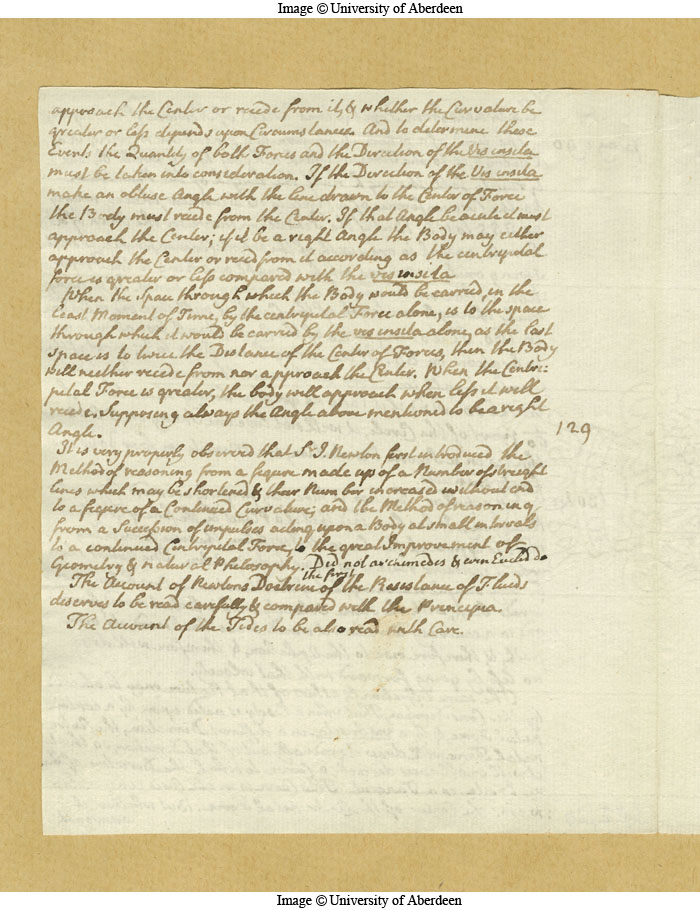 Image © University of Aberdeen
approach the Center or recede from it, & whether the Curvature be
greater or less depends upon Circumstances. And to determine these
Events the Quantity of both Forces and the Direction of the Vis insita
must be taken into consideration. If the Direction of the Vis insita
make an obtuse Angle with the line drawn to the Center of Force
the Body must recede from the Center. If that Angle be acute it must
approach the Center; if it be a right Angle the Body may either
approach the Center or recede from it according as the centripetal
force is greater or less compared with the vis insita
When the Space through which the Body would be carried, in the
least Moment of Time, by the centripetal Force alone, is to the space
through which it would be carried by the vis insita alone, as the last
space is to twice the Distance of the Center of Forces, then the Body
will neither recede from nor approach the Center. When the Centri:
petal Force is greater, the body will approach when less it will
recede. Supposing always the Angle above mentioned to be a right
Angle.
129
It is very properly observed that Sr I. Newton first introduced the
Method of reasoning from a figure made up of a Number of streight
lines which may be shortened & their Number increased without end
to a figure of a Continued Curvature; and the Method of reasoning
from a Succession of impulses acting upon a Body at small intervals
to a continued Centripetal Force, to the great Improvement of
Geometry & natural Philosophy. Did not archimedes & even Euclid do
the first
The Account of Newtons Doctrine of the Resistance of Fluids
deserves to be read carefully & compared with the Principia
The Account of the Tides to be also read with Care.
Image © University of Aberdeen